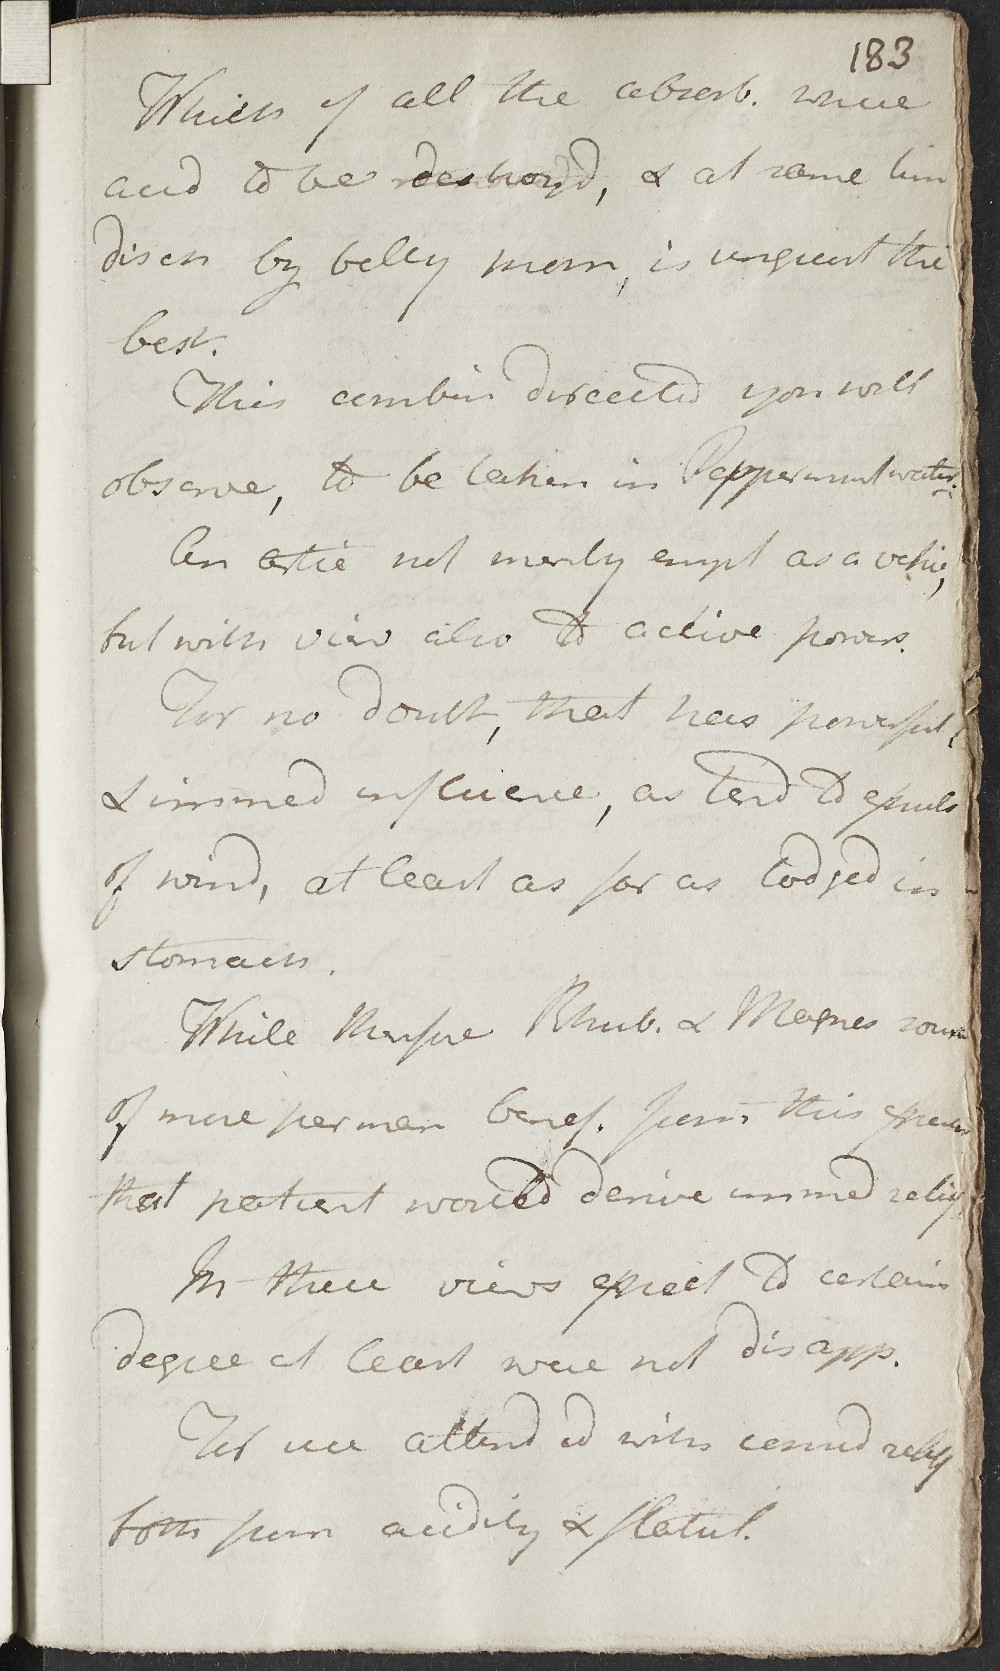 183
Which of all the absorb. where
acid to be destroy'd, & at same tim
disch by belly mom, is unquest the
best.
This combin directed you will
observe, to be taken in Peppermint water.
An artic not merely empl as a vehic,
but with view also to active powers.
For no doubt, that has powerful,
& immed influence, as tend to expuls
of wind, at least as far as lodged in
stomach.
While therefore Rhub. & Magnes sourc
of more perman benef. from this
that patient would derive immed relief.
In these views expect to certain
degree at least were not disapp.
For use attended with consid relief
both from acidity & flatul.